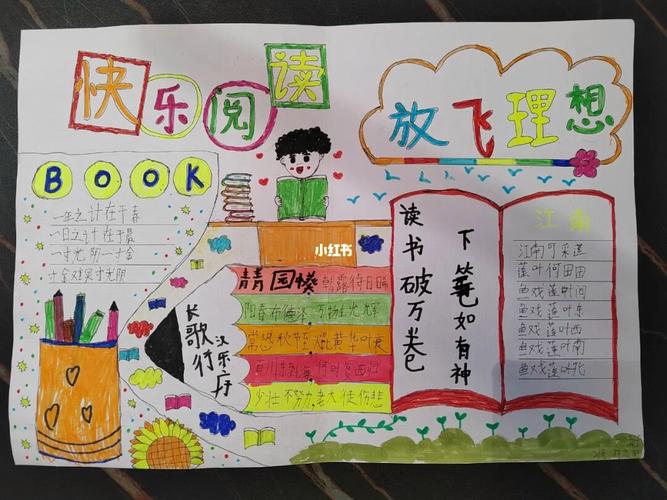 快乐阅读
放飞理想
BOOK
一年之计在于春
一日之计在于晨
一寸光阴一寸金
寸金难买寸光阴
小红书
长歌行
汉乐府
青园葵 朝露待日晞
阳春布德泽 万物生光辉
常恐秋节至 焜黄华叶衰
百川东到海 何时复西归
少壮不努力 老大徒伤悲
读书破万卷
下笔如有神
江南
江南可采莲
莲叶何田田
鱼戏莲叶间
鱼戏莲叶东
鱼戏莲叶西
鱼戏莲叶南
鱼戏莲叶北